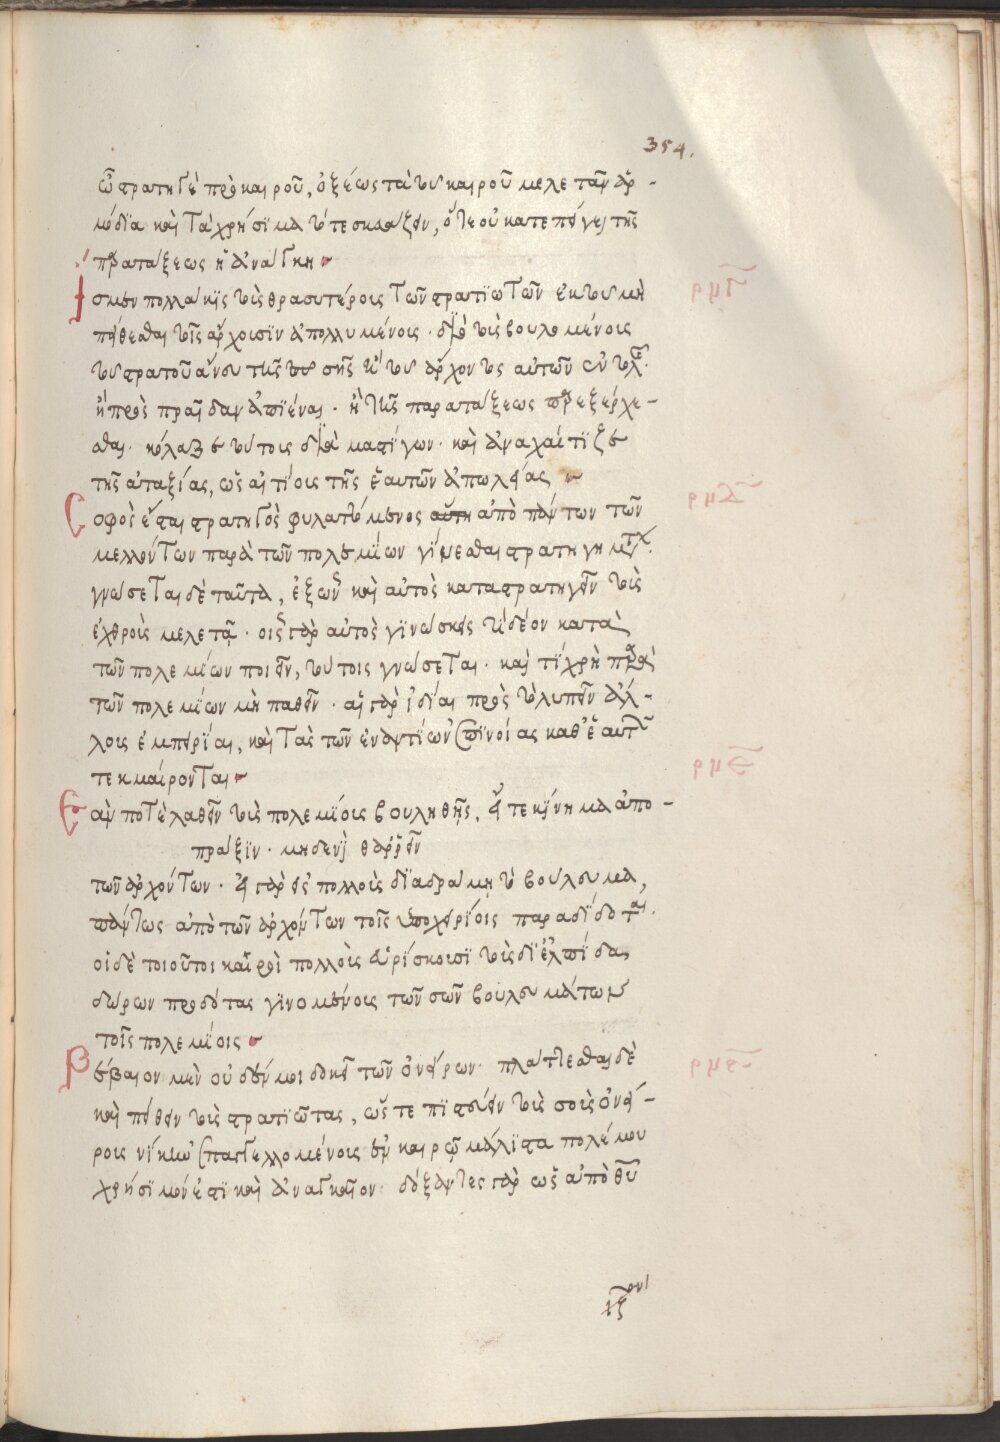 354.
ὦ στρατηγὲ πρὸ καιροῦ, ὀξέως τὰ τοῦ καιροῦ μελετᾶν ἁρ-
μόδϊα καὶ τὰ χρήσϊμα τότε σκεδάζειν, ὅτε οὐ κατεπείγει τῆς
πρατάξεως ἡ ἀνάγκη
ἴσμεν πολλάκϊς τοῖς θρασυτέροις τῶν στρατϊωτῶν ἐκ τοῦ μὴ
πείθεσθαι τοῖς ἄρχουσϊν ἀπολλυμένοις· διὸ τοῖς βουλομένοις
τοῦ στρατοῦ ἄνευ τῆς τοῦ ἄρχοντος αὐτῶν
ἢ πρὸς πραῖδαν ἀπϊέναι· ἢ τῆς παρατάξεως προεξέρχε-
σθαι· κόλαζε τούτοις διὰ μαστίγων· καὶ ἀναχαίτϊζε
τῆς ἀταξίας, ὡς αἰτίοις τῆς ἑαυτῶν ἀπωλείας
Σοφὸς ἔσται στρατηγὸς φυλαττόμενος ἀπὸ πάντων τῶν
μελλόντων παρὰ τῶν πολεμϊων γίνεσθαι στρατηγημάτ
γνώσεται δὲ ταῦτα, ἐξ ὧν καὶ αὐτὸς καταστρατηγεῖν τοῖς
ἐχθροῖς μελετᾷ· οἷς γὰρ αὐτὸς γϊνώσκεις δέον κατὰ
τῶν πολεμίων ποιεῖν, τούτοις γνώσεται· καὶ τί χρὴ παρὰ
τῶν πολεμϊων μὴ παθεῖν· αἱ γὰρ ἰδίαι πρὸς τὸ λυπεῖν ἀλ-
λοις ἐμπειρίαι, καὶ τὰς τῶν ἐναντίων ἐπϊνοίας καθ᾽ ἑαυτ
τεκμαίρονται
Ἐὰν ποτὲ λαθεῖν τοῖς πολεμϊοις βουληθῇς, εἴτε κίνημα ἀπο-
πραξϊν· μηδενὶ θάρρειν
τῶν ἀρχόντων· εἰ γὰρ εἰς πολλοὺς διαδράμῃ τὸ βούλευμα,
πάντως ἀπὸ τῶν ἀρχόντων τοῖς ὑποχειρίοις παραδϊδοται
οἱ δὲ τοιοῦτοι καιροὶ πολλοὺς εὑρίσκουσϊ τοῖς δι᾽ ἐλπϊδας
δώρων προδότας γϊνομένοις τῶν σῶν βουλευμάτων
τοῖς πολεμϊοις
Βέβαιον μὲν οὐδέν μοι δοκεῖ τῶν ὀνείρων· πλάττεσθαι δὲ
καὶ πείθειν τοῖς στρατϊώτας, ὥστε πϊστεύειν τοῖς σοῖς ὀνεί-
ροις νίκην ἐπαγγελλομένοις ἐν καιρῷ μάλϊστα πολέμου
χρήσϊμόν ἐστι καὶ ἀναγκαῖον· δόξαντες γὰρ ὡς ἀπὸ θεῦ